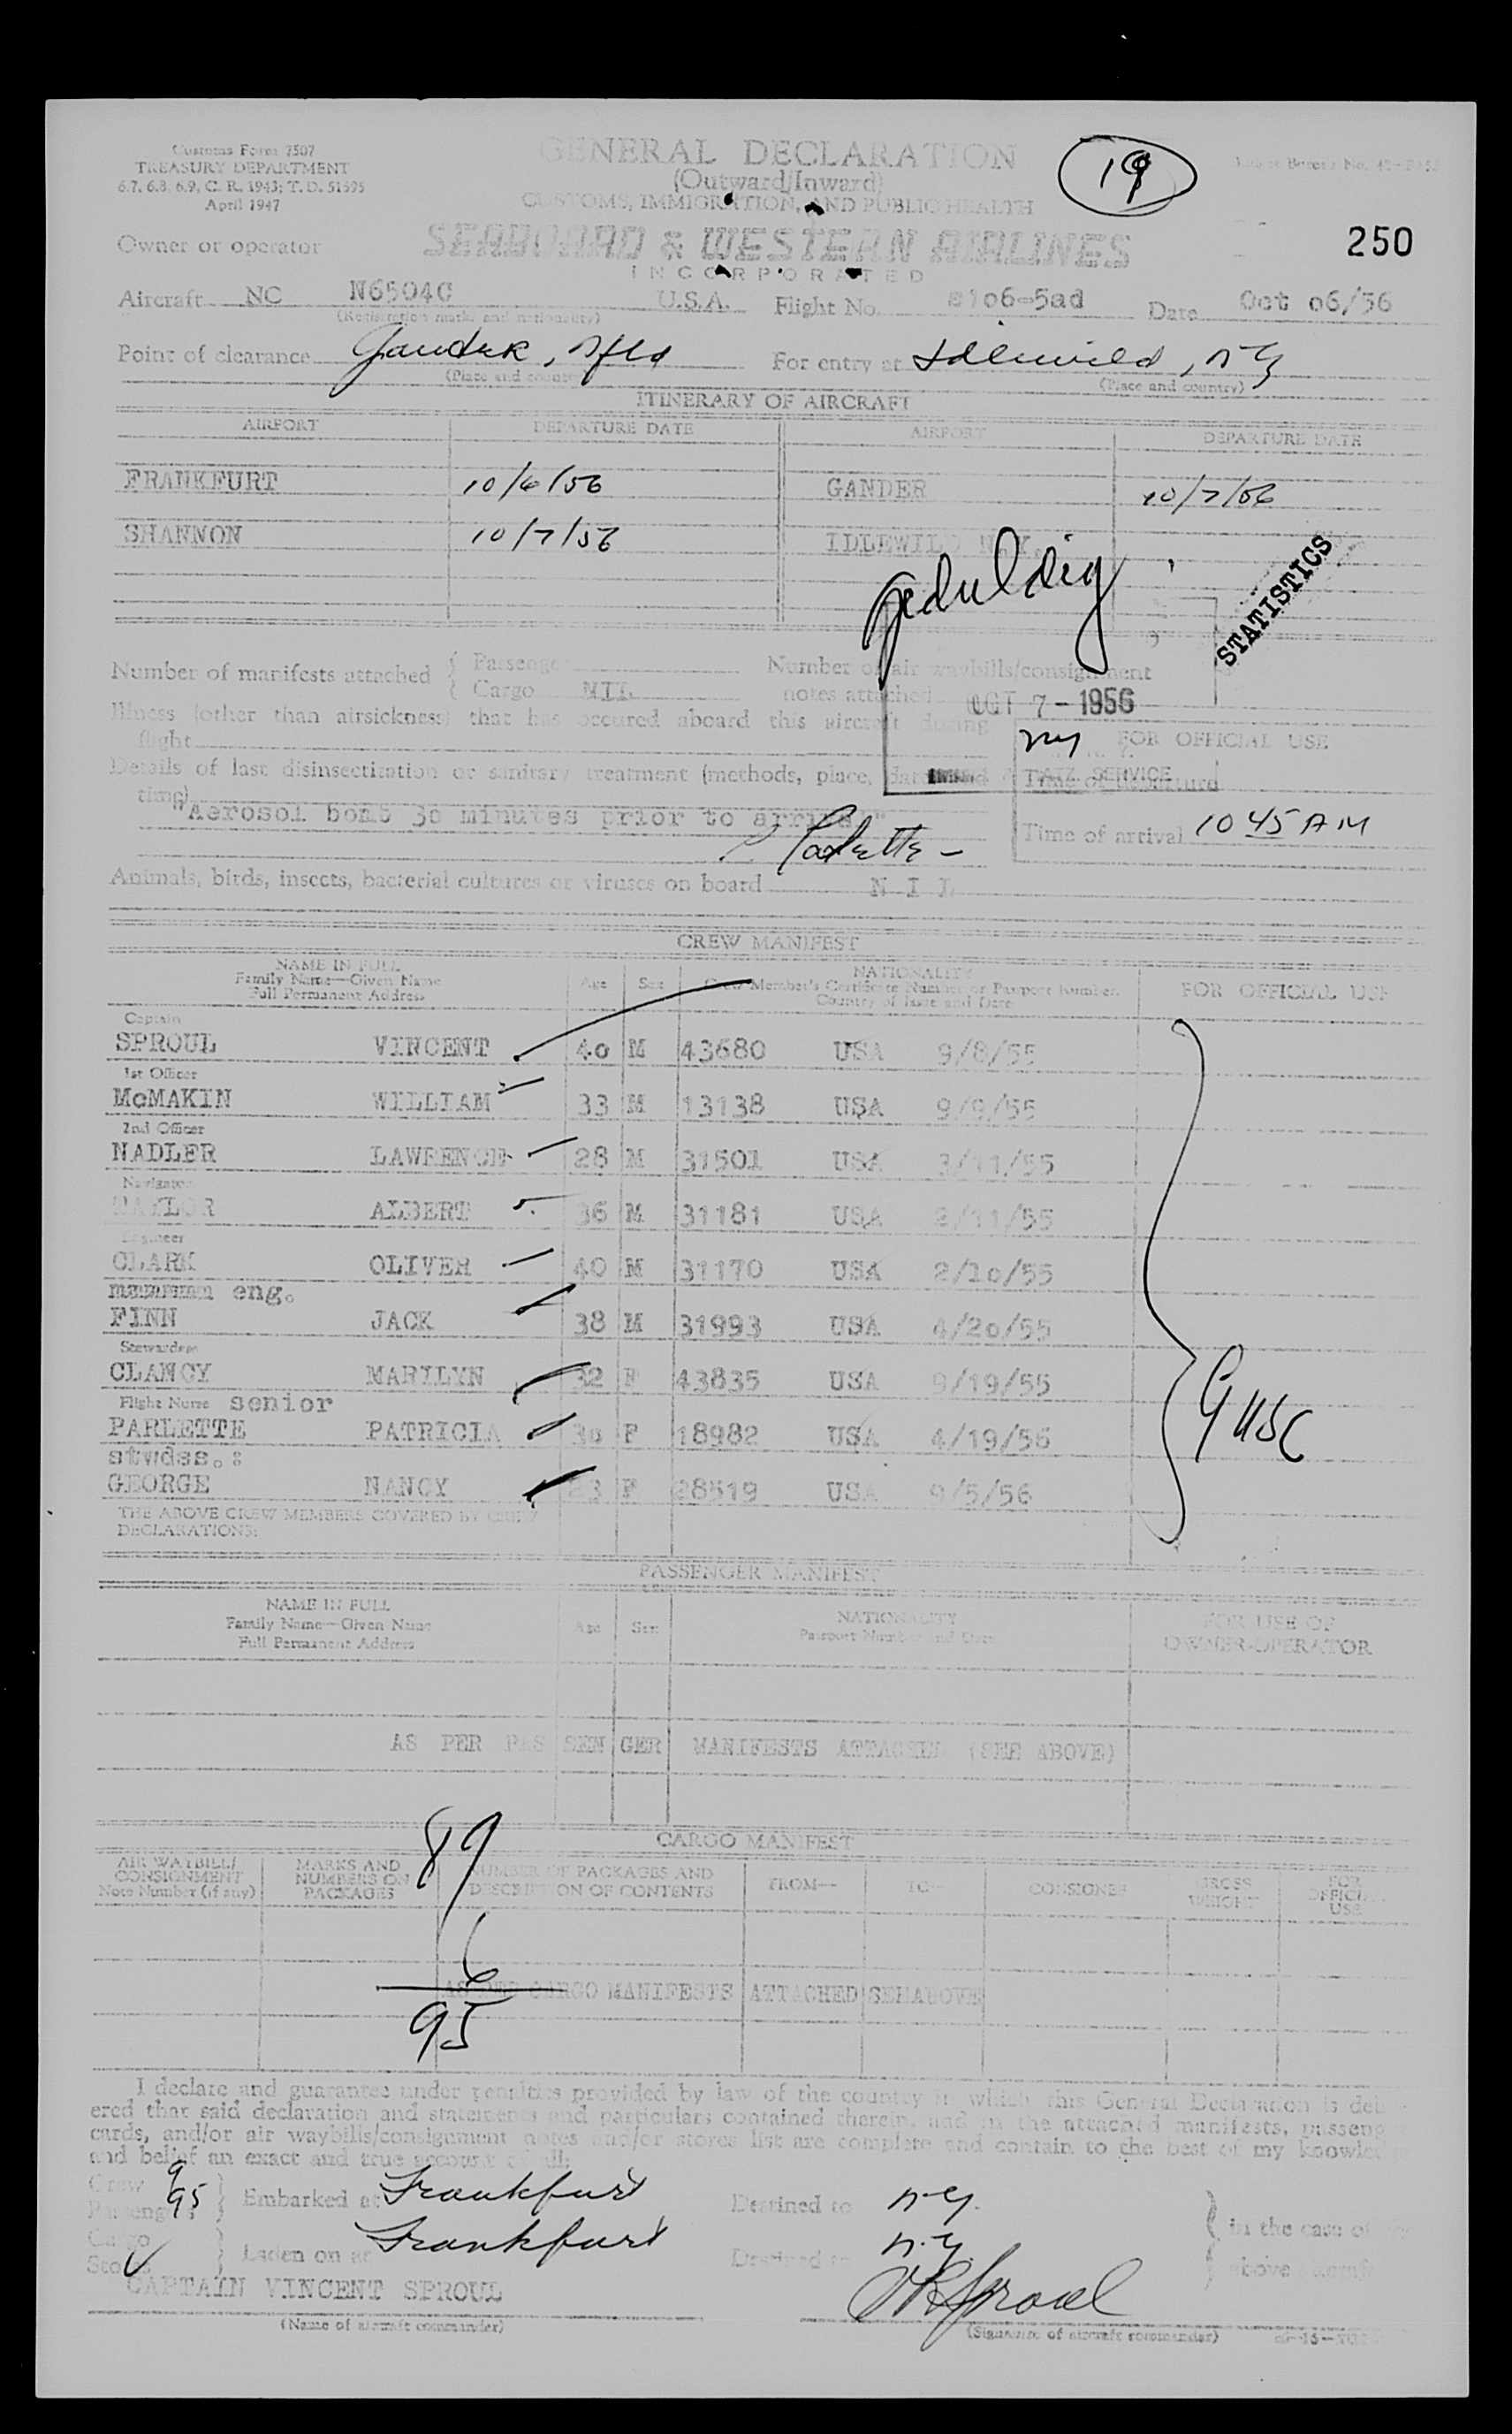 Customs Form 7507
TREASURY DEPARTMENT
6.7, 6.8, 6.9, C. R. 1943; T. D. 51595
April 1947
GENERAL DECLARATION
(Outward/Inward)
CUSTOMS, IMMIGRATION, AND PUBLIC HEALTH
19
250
Owner or operator SEABOARD & WESTERN AIRLINES
INCORPORATED
Aircraft NC N6504C U.S.A. Flight No. Date Oct 06/56
(Registration mark and nationality)
Point of clearance Gander, Nfld For entry at Idlewild, NY
(Place and country) (Place and country)
ITINERARY OF AIRCRAFT
AIRPORT DEPARTURE DATE AIRPORT DEPARTURE DATE
FRANKFURT 10/6/56 GANDER 10/7/56
SHANNON 10/7/56 IDLEWILD N.Y.
STATISTICS
Number of manifests attached { Passenger Number of air waybills/consignment
{ Cargo NIL notes attached
OCT 7 - 1956
Illness (other than airsickness) that has occured aboard this aircraft during
flight
NY FOR OFFICIAL USE
Details of last disinsectization or sanitary treatment (methods, place, date and
time)
Time of departure
"Aerosol bomb 30 minutes prior to arrival"
Time of arrival 10 45 AM
Animals, birds, insects, bacterial cultures or viruses on board N I L
CREW MANIFEST
NAME IN FULL
Family Name—Given Name
Full Permanent Address
Age Sex NATIONALITY
Crew Member's Certificate Number or Passport Number,
Country of Issue and Date
FOR OFFICIAL USE
Captain
SPROUL VINCENT 40 M 43680 USA 9/8/55
1st Officer
McMAKIN WILLIAM 33 M 13138 USA 9/9/55
2nd Officer
NADLER LAWRENCE 28 M 31501 USA 3/11/55
Navigator
ALBERT 36 M 31181 USA 2/11/55
Engineer
CLARK OLIVER 40 M 31170 USA 2/10/55
eng.
FINN JACK 38 M 31993 USA 4/20/55
Stewardess
CLANCY MARILYN 32 F 43835 USA 9/19/55
Flight Nurse senior
PARLETTE PATRICIA 30 F 18982 USA 4/19/56
stwdss.:
GEORGE NANCY 23 F 28519 USA 9/5/56
9 USC
THE ABOVE CREW MEMBERS COVERED BY
DECLARATIONS:
PASSENGER MANIFEST
NAME IN FULL
Family Name—Given Name
Full Permanent Address
Age Sex NATIONALITY
Passport Number and Date
FOR USE OF
OWNER-OPERATOR
AS PER PASSENGER MANIFESTS ATTACHED (SEE ABOVE)
89
CARGO MANIFEST
AIR WAYBILL/
CONSIGNMENT
Note Number (if any)
MARKS AND
NUMBERS ON
PACKAGES
NUMBER OF PACKAGES AND
DESCRIPTION OF CONTENTS
FROM— TO— CONSIGNEE GROSS
WEIGHT
FOR
OFFICIAL
USE
6
AS PER CARGO MANIFESTS ATTACHED SEE ABOVE
95
I declare and guarantee under penalties provided by law of the country in which this General Declaration is deliv-
ered that said declaration and statements and particulars contained therein, and in the attached manifests, passenger
cards, and/or air waybills/consignment notes and/or stores list are complete and contain to the best of my knowledge
and belief an exact and true account of all:
Crew 9
Passengers 95 } Embarked at Frankfurt Destined to N.Y. } in the case of the
Cargo
Stores } Laden on at Frankfurt Destined to N.Y. } above
CAPTAIN VINCENT SPROUL
(Name of aircraft commander) (Signature of aircraft commander)